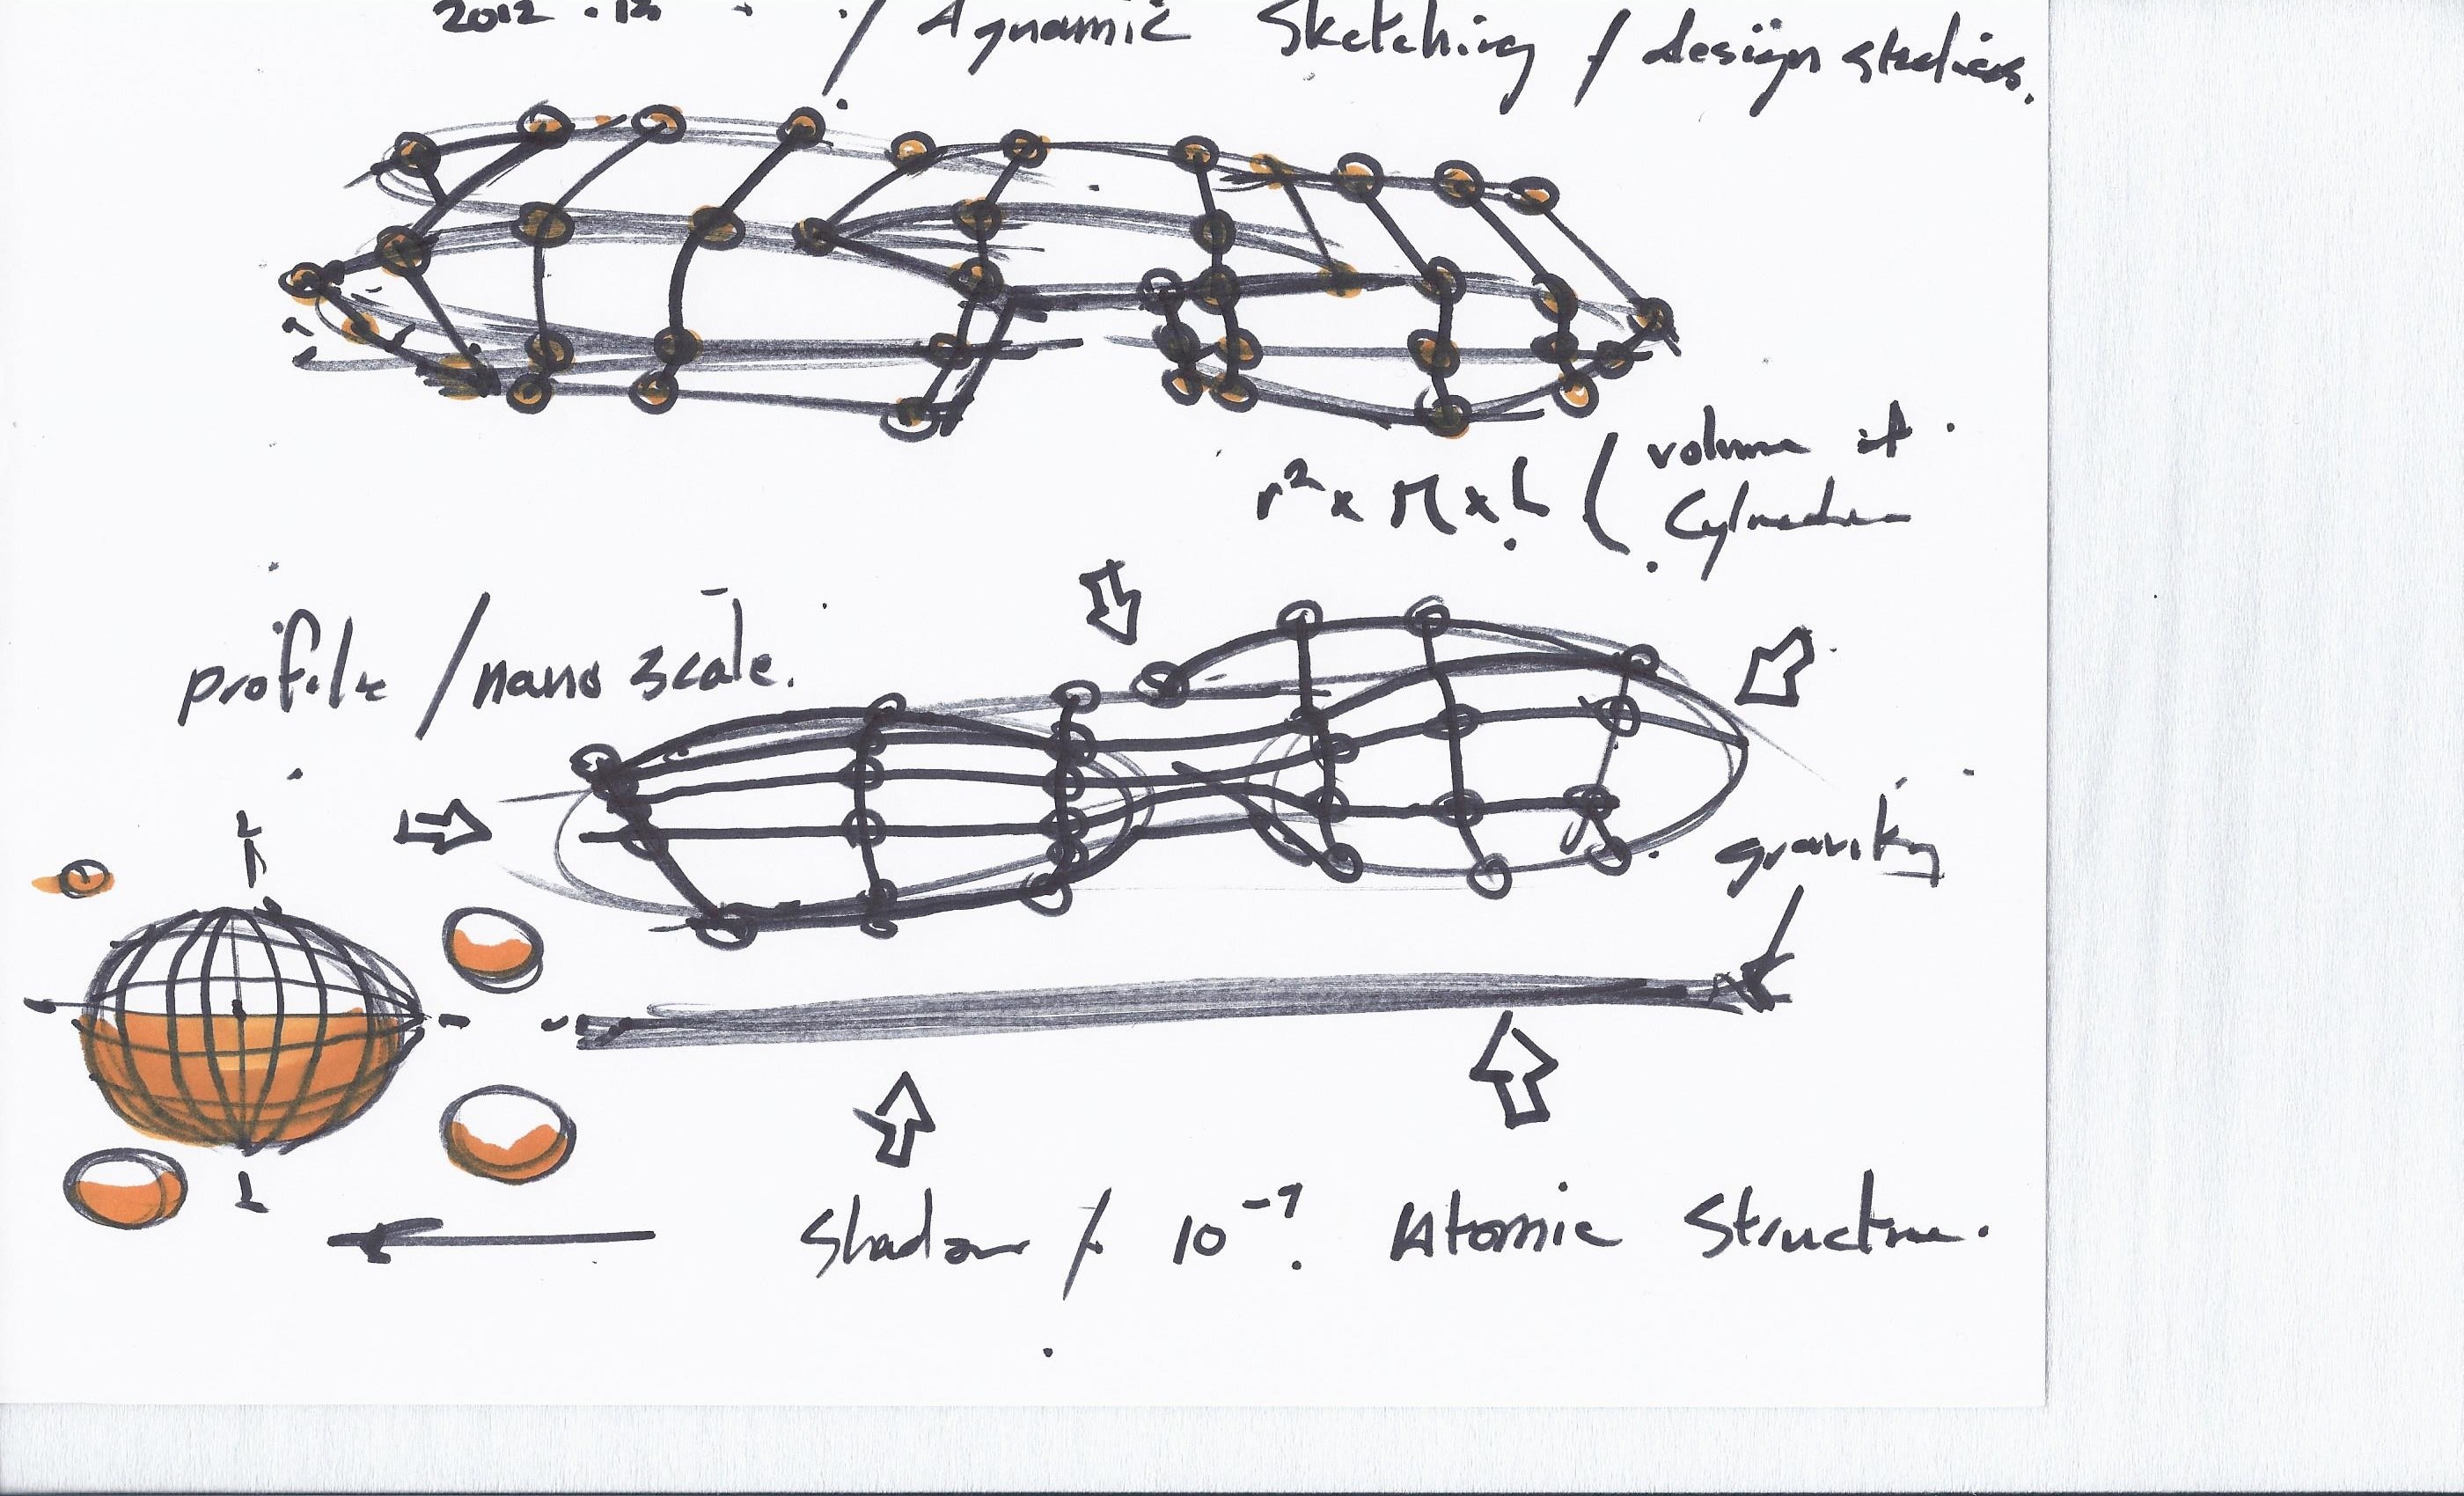 2012 . 12 . . / Dynamic Sketching / design studies.
r² x π x h ( volume of
Cylinder
profile / nano scale.
gravity
Shadow / 10⁻⁹. Atomic Structure.